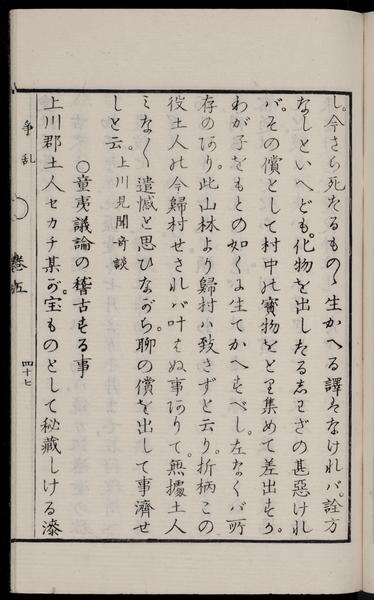 し。今さら死たるものゝ生かへる譯はなけれバ。詮方
なしといへども。化物を出したるしわざの甚惡けれ
バ。その償として村中の寳物をとり集めて差出すか。
わが子をもとの如くに生てかへすべし。左なくバ所
存のあり。此山林より歸村ハ致さずと云り。折柄この
役土人も今歸村せされバ叶はぬ事ありて。無據土人
ミなく遺憾と思ひながら。聊の償を出して事濟せ
しと云。上川見聞奇談
〇童夷議論の稽古する事
上川郡土人セカチ某が。宝ものとして秘藏しける漆
争乱
巻五
四十七